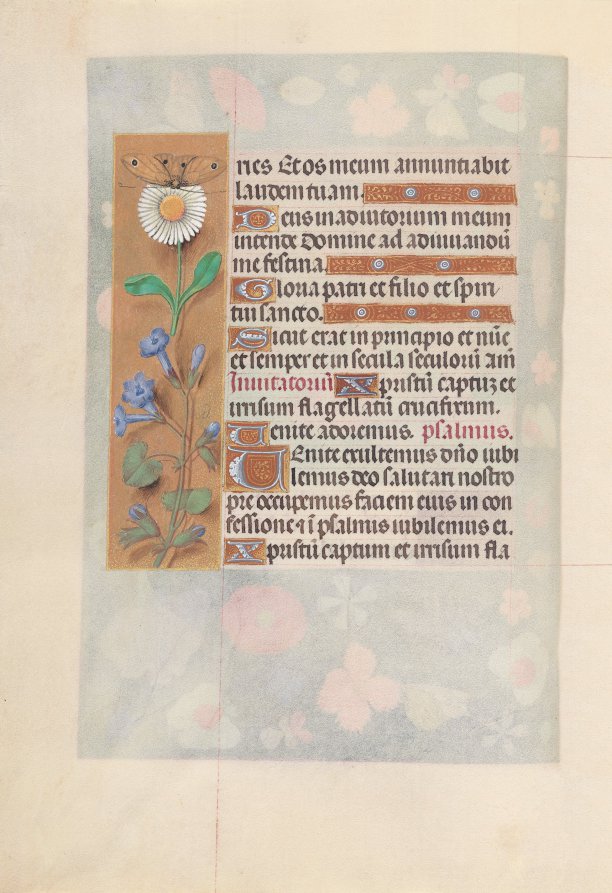 ries Et os meum annuntiabit
laudem tuam.
Deus in adiutorium meum
intende Domine ad adiuuandū
me festina.
Gloria patri et filio et spiri
tui sancto.
Sicut erat in principio et nūc
et semper et in secula seculorū am̄
Inuitatoriū Xpristū captū et
irrisum flagellatū crucifixum.
Uenite adoremus. psalmus.
UEnite exultemus dn̄o iubi
lemus deo salutari nostro
pre occupemus faciem eius in con
fessione et ī psalmis iubilemus ei.
Xpristū captum et irrisum fla